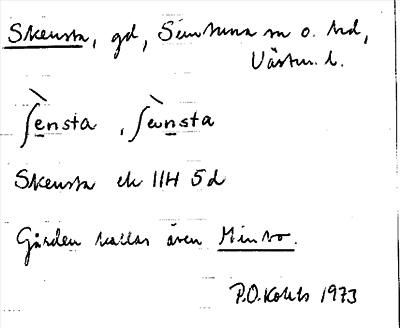 Skensta, gd, Simtuna sn o. hd,
Västm. l.
ʃènsta, ʃæ̀nsta
Skensta ek 11H 5d
Gården kallas även Minbo.
P.O. 1973